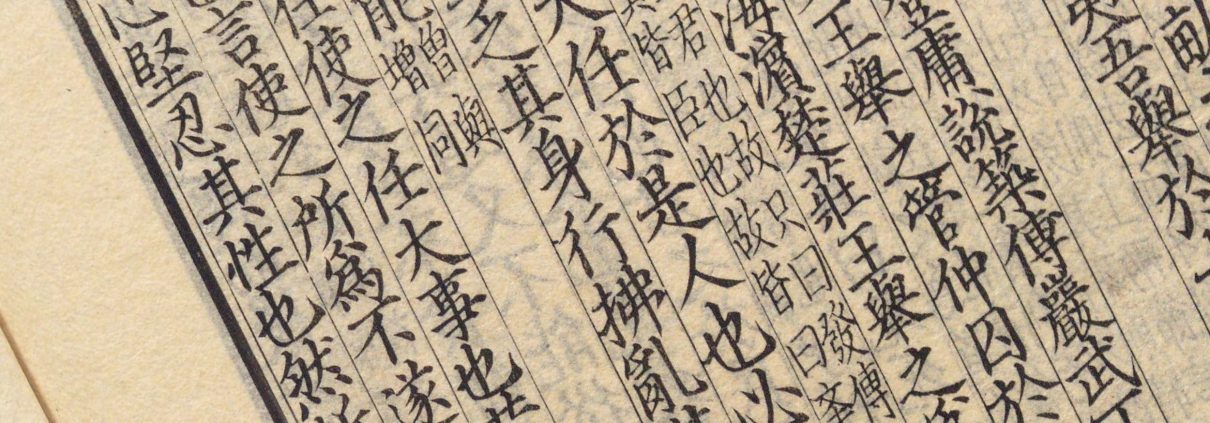 畎
夫吾舉於
說築傅巖武丁
登庸管仲囚於
王舉之
海濱楚莊王舉之
君也故只曰發傅
皆臣也故皆曰
大任於是人也必
之其身行拂亂其
增與
曾同
能任大事也
任使之所為不遂
言使之然
心堅忍其性也